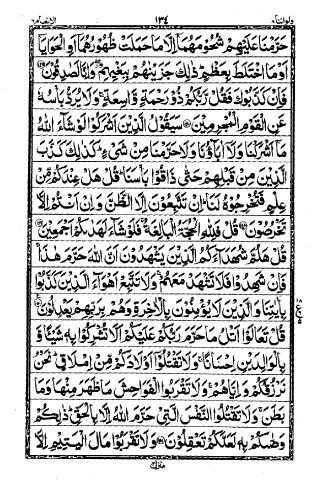 ولواننا ٨ ١٣٤ الانعام ٦
حَرَّمْنَا عَلَيْهِمْ شُحُوْمَهُمَآ اِلَّا مَا حَمَلَتْ ظُهُوْرُهُمَآ اَوِ الْحَوَايَآ
اَوْ مَا اخْتَلَطَ بِعَظْمٍ ذٰلِكَ جَزَيْنٰهُمْ بِبَغْيِهِمْ وَاِنَّا لَصٰدِقُوْنَ
فَاِنْ كَذَّبُوْكَ فَقُلْ رَّبُّكُمْ ذُوْ رَحْمَةٍ وَّاسِعَةٍ وَلَا يُرَدُّ بَاْسُهٗ
عَنِ الْقَوْمِ الْمُجْرِمِيْنَ سَيَقُوْلُ الَّذِيْنَ اَشْرَكُوْا لَوْ شَآءَ اللّٰهُ
مَآ اَشْرَكْنَا وَلَآ اٰبَآؤُنَا وَلَا حَرَّمْنَا مِنْ شَيْءٍ كَذٰلِكَ كَذَّبَ
الَّذِيْنَ مِنْ قَبْلِهِمْ حَتّٰى ذَاقُوْا بَاْسَنَا قُلْ هَلْ عِنْدَكُمْ مِّنْ
عِلْمٍ فَتُخْرِجُوْهُ لَنَا اِنْ تَتَّبِعُوْنَ اِلَّا الظَّنَّ وَاِنْ اَنْتُمْ اِلَّا
تَخْرُصُوْنَ قُلْ فَلِلّٰهِ الْحُجَّةُ الْبَالِغَةُ فَلَوْ شَآءَ لَهَدٰىكُمْ اَجْمَعِيْنَ
قُلْ هَلُمَّ شُهَدَآءَكُمُ الَّذِيْنَ يَشْهَدُوْنَ اَنَّ اللّٰهَ حَرَّمَ هٰذَا
فَاِنْ شَهِدُوْا فَلَا تَشْهَدْ مَعَهُمْ وَلَا تَتَّبِعْ اَهْوَآءَ الَّذِيْنَ كَذَّبُوْا
بِاٰيٰتِنَا وَالَّذِيْنَ لَا يُؤْمِنُوْنَ بِالْاٰخِرَةِ وَهُمْ بِرَبِّهِمْ يَعْدِلُوْنَ
قُلْ تَعَالَوْا اَتْلُ مَا حَرَّمَ رَبُّكُمْ عَلَيْكُمْ اَلَّا تُشْرِكُوْا بِهٖ شَيْئًا وَّ
بِالْوَالِدَيْنِ اِحْسَانًا وَلَا تَقْتُلُوْٓا اَوْلَادَكُمْ مِّنْ اِمْلَاقٍ نَحْنُ
نَرْزُقُكُمْ وَاِيَّاهُمْ وَلَا تَقْرَبُوا الْفَوَاحِشَ مَا ظَهَرَ مِنْهَا وَمَا
بَطَنَ وَلَا تَقْتُلُوا النَّفْسَ الَّتِيْ حَرَّمَ اللّٰهُ اِلَّا بِالْحَقِّ ذٰلِكُمْ
وَصّٰىكُمْ بِهٖ لَعَلَّكُمْ تَعْقِلُوْنَ وَلَا تَقْرَبُوْا مَالَ الْيَتِيْمِ اِلَّا
منزل